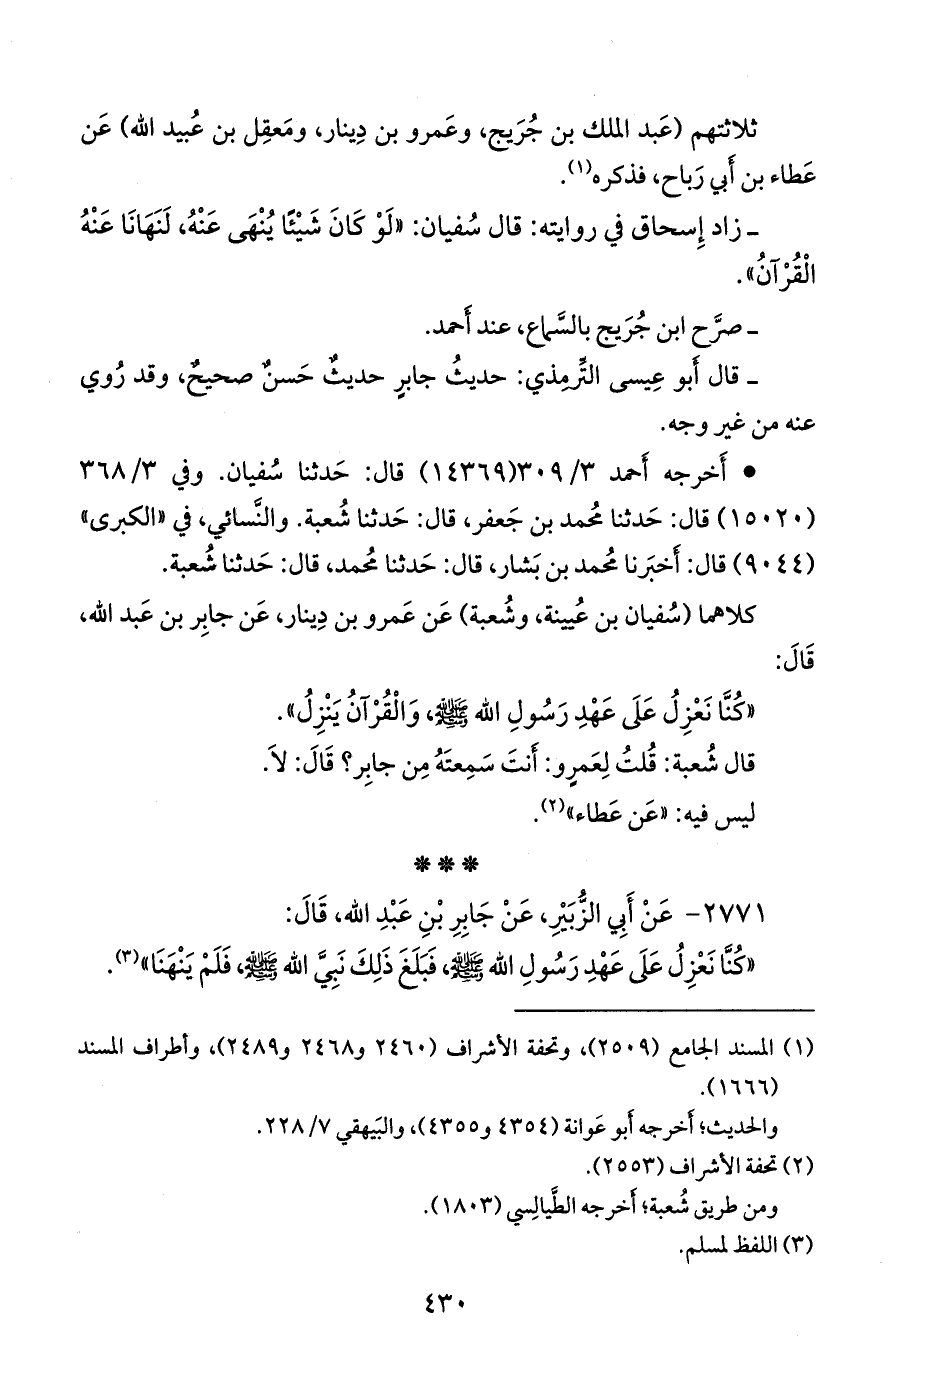 ثلاثتهم (عَبد الملك بن جُرَيج، وعَمرو بن دِينار، ومَعقِل بن عُبيد الله) عَن
عَطاء بن أَبي رَباح، فذكره(١).
ـ زاد إِسحاق في روايته: قال سُفيان: «لَوْ كَانَ شَيْئًا يُنْهَى عَنْهُ، لَنَهَانَا عَنْهُ
الْقُرْآنُ».
ـ صرَّح ابن جُرَيج بالسَّماع، عند أَحمد.
ـ قال أَبو عِيسى التِّرمِذي: حديثُ جابرٍ حديثٌ حَسنٌ صحيحٌ، وقد رُوي
عنه من غير وجه.
• أَخرجه أَحمد ٣/ ٣٠٩(١٤٣٦٩) قال: حَدثنا سُفيان. وفي ٣/ ٣٦٨
(١٥٠٢٠) قال: حَدثنا مُحمد بن جَعفر، قال: حَدثنا شُعبة. والنَّسائي، في «الكبرى»
(٩٠٤٤) قال: أَخبَرنا مُحمد بن بَشار، قال: حَدثنا مُحمد، قال: حَدثنا شُعبة.
كلاهما (سُفيان بن عُيينة، وشُعبة) عَن عَمرو بن دِينار، عَن جابِر بن عَبد الله،
قَالَ:
«كُنَّا نَعْزِلُ عَلَى عَهْدِ رَسُولِ الله ﷺ، وَالْقُرْآنُ يَنْزِلُ».
قال شُعبة: قُلتُ لِعَمرٍو: أَنتَ سَمِعتَهُ مِن جابِر؟ قَالَ: لاَ.
ليس فيه: «عَن عَطاء»(٢).
* * *
٢٧٧١- عَنْ أَبِي الزُّبَيْرِ، عَنْ جَابِرِ بْنِ عَبْدِ الله، قَالَ:
«كُنَّا نَعْزِلُ عَلَى عَهْدِ رَسُولِ الله ﷺ، فَبَلَغَ ذَلِكَ نَبِيَّ الله ﷺ، فَلَمْ يَنْهَنَا»(٣).
(١) المسند الجامع (٢٥٠٩)، وتحفة الأشراف (٢٤٦٠ و٢٤٦٨ و٢٤٨٩)، وأطراف المسند
(١٦٦٦).
والحديث؛ أَخرجه أَبو عَوانة (٤٣٥٤ و٤٣٥٥)، والبَيهقي ٧/ ٢٢٨.
(٢) تحفة الأشراف (٢٥٥٣).
ومن طريق شُعبة؛ أَخرجه الطَّيالِسي (١٨٠٣).
(٣) اللفظ لمسلم.
٤٣٠